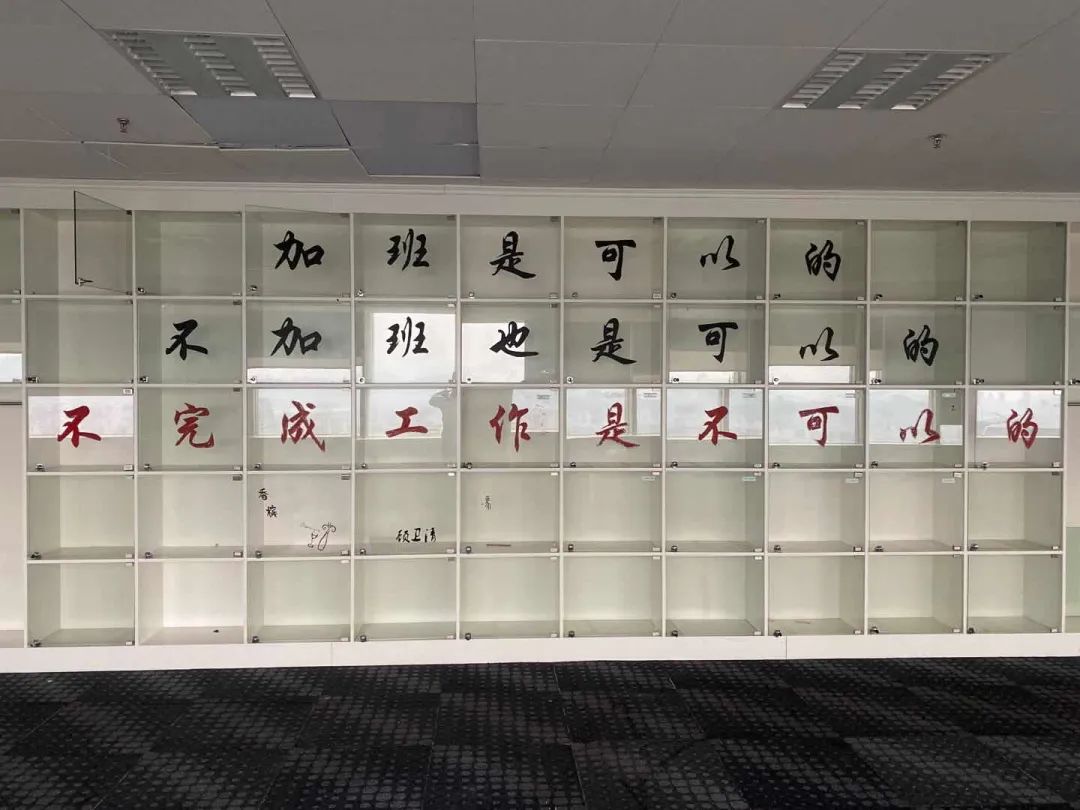 加班是可以的
不加班也是可以的
不完成工作是不可以的
顾卫清